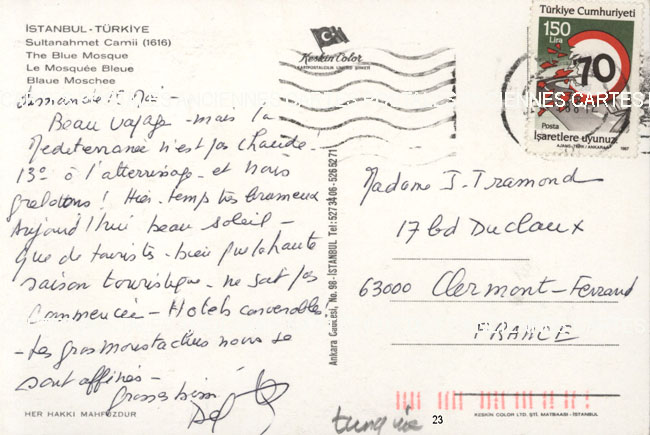 İSTANBUL - TÜRKİYE
Sultanahmet Camii (1616)
The Blue Mosque
Le Mosquée Bleue
Blaue Moschee
Dimanche Mai -
Beau voyage - mais la
Mediterranée n'est pas chaude!
13° à l'atterrissage - et nous
grelottons! Hier - temps très brumeux
Aujourd'hui beau soleil -
que de touristes - bien que la haute
saison touristique - ne soit pas
commencée - Hotels convenables.
- Les gros moustachus nous se
sont affinés -
Grosses bises
HER HAKKI MAHFUZDUR
Keskin Color
KARTPOSTALCILIK LİMİTED ŞİRKETİ
Ankara Caddesi, No. 98 - İSTANBUL Tel: 5273406 - 5265271
Türkiye Cumhuriyeti
150
Lira
70
Posta
İşaretlere uyunuz
AJANS-TÜRK / ANKARA
1987
ANCIENNES CARTES
Madame J. Tramond
17 bd Duclaux
63000 Clermont-Ferrand
FRANCE
23
KESKİN COLOR LTD. ŞTİ. MATBAASI - İSTANBUL
turquie